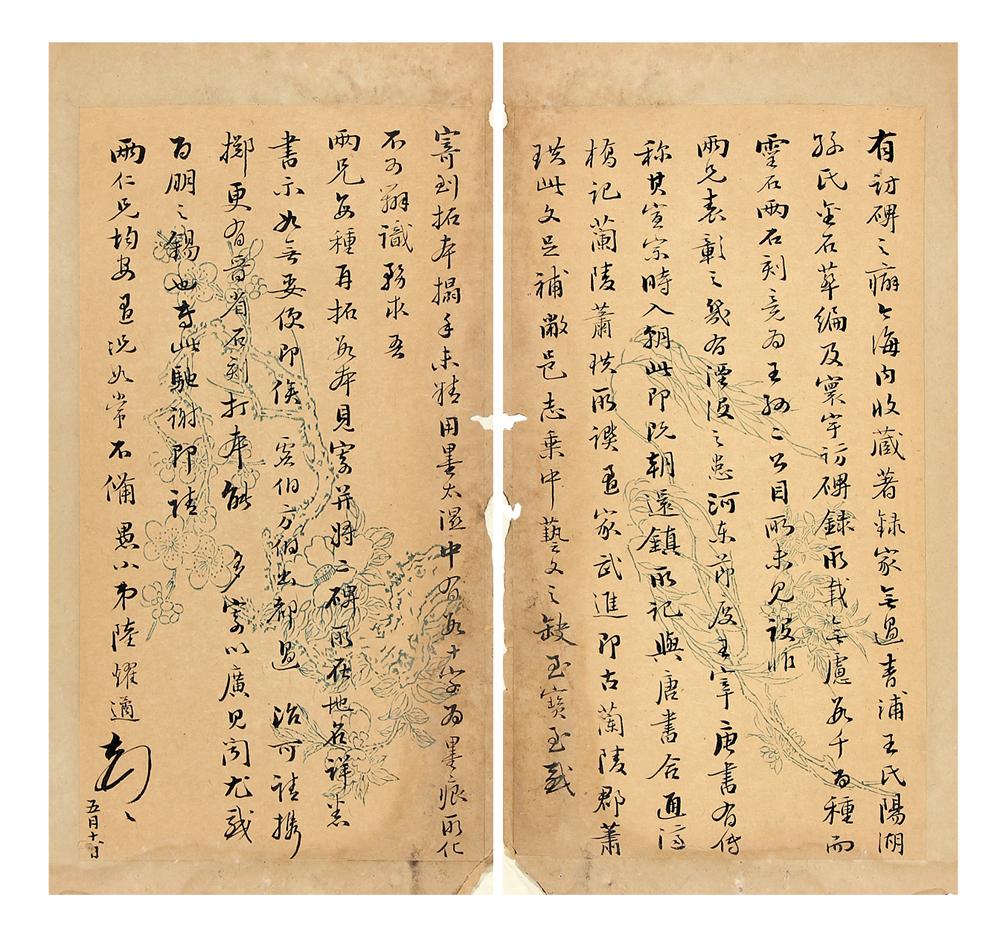 有訪碑之癖今海內收藏著録家無過青浦王氏陽湖
孫氏金石萃編及寰宇訪碑録所載無慮數千百種而
靈石兩石刻竟為王孫二公目所未見設非
兩兄表彰之幾有湮沒之患河東節度王宰唐書有傳
称其宣宗時入朝此即阮朝還鎮所記與唐書合通濟
橋記蘭陵蕭珙所譔通家武進即古蘭陵郡蕭
珙此文足補敝邑志乘中藝文之缺至寶至感
寄到拓本搨手未精用墨太濕中有數十字為墨痕所化
不可辨識務求吾
兩兄每種再拓數本見寄并將二碑所在地名詳悉
書示如無要便即俟 雲伯方伯出都過 治可請携
擲更有晉省石刻打本能 多寄以廣見聞尤感
百朋之錫也専此馳謝即請
兩仁兄均安 近況如常不備 愚小弟陸耀遹
五月十八日